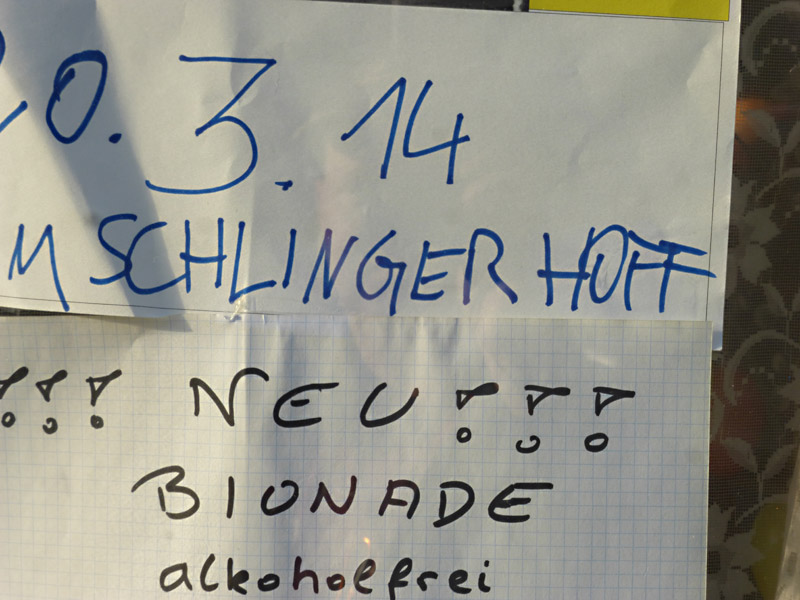 20. 3. 14
M SCHLINGER HOFF
!!! NEU!!!
BIONADE
alkoholfrei